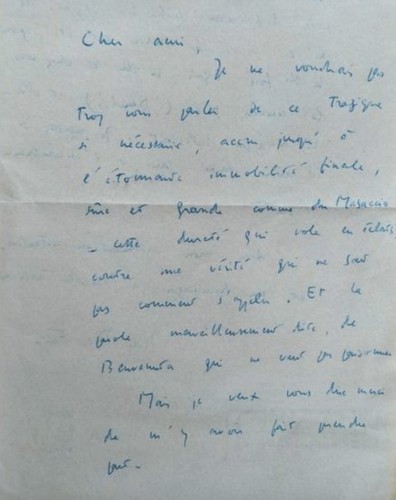 Cher ami,
Je ne voudrais pas
trop vous parler de ce Tragique
si nécessaire, accru jusqu'à
l'étonnante immobilité finale,
sûre et grande comme du Masaccio
_ cette dureté qui vole en éclats
contre une vérité qui ne sait
pas comment s'appeler. Et la
parole merveilleusement dite, de
Benvenuta qui ne veut pas pardonner
Mais je veux vous dire merci
de m'y avoir fait prendre
part _